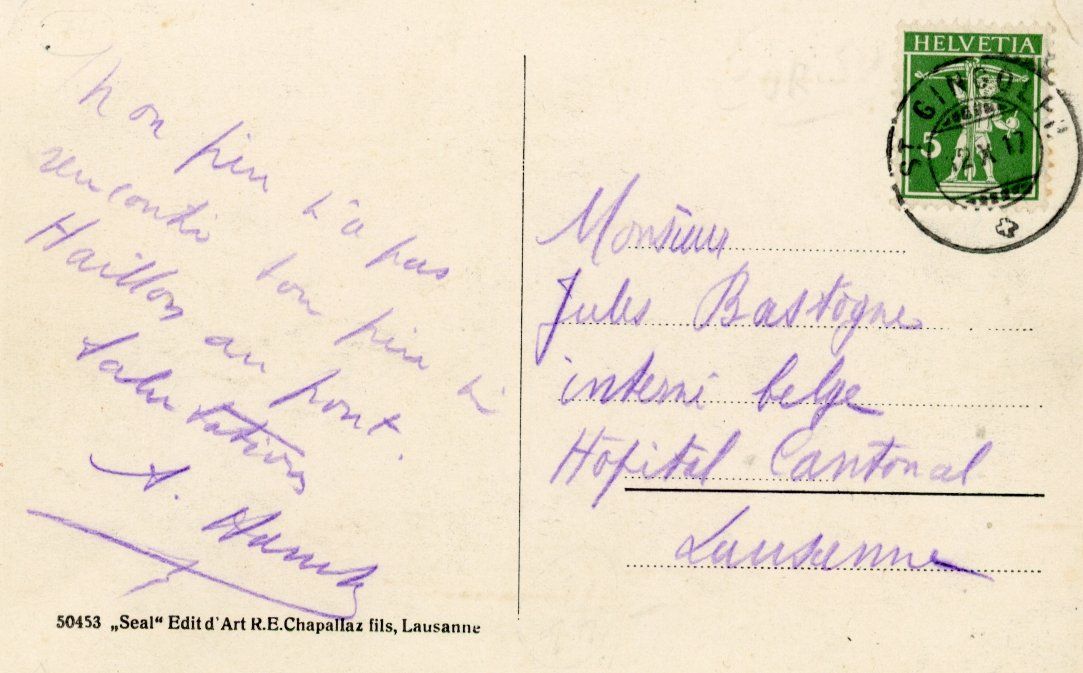 Mon père n'a pas
rencontré ton père ni
Haillon au pont.
Salutations
A.
Monsieur
Jules Bastogne
interné belge
Hôpital Cantonal
Lausanne
HELVETIA
5
ST. GINGOLPH
2 X 17
50453 „Seal“ Edit d'Art R.E.Chapallaz fils, Lausanne